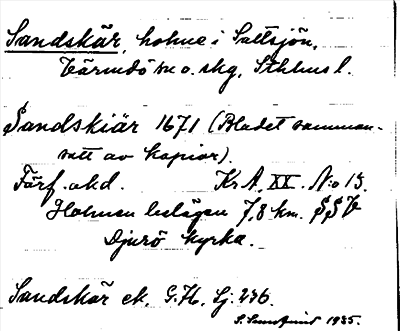 Sandskär, holme i Saltsjön,
Värmdö sn o. skg, Sthlms l.
Sandskiär 1671 (Bladet samman-
satt av kopior).
Färf. akd. Kr A, XX. No 13.
Holmen belägen 7,8 km. SSV
Djurö kyrka.
Sandskär ek. G.K. Lj. 236.
1935.